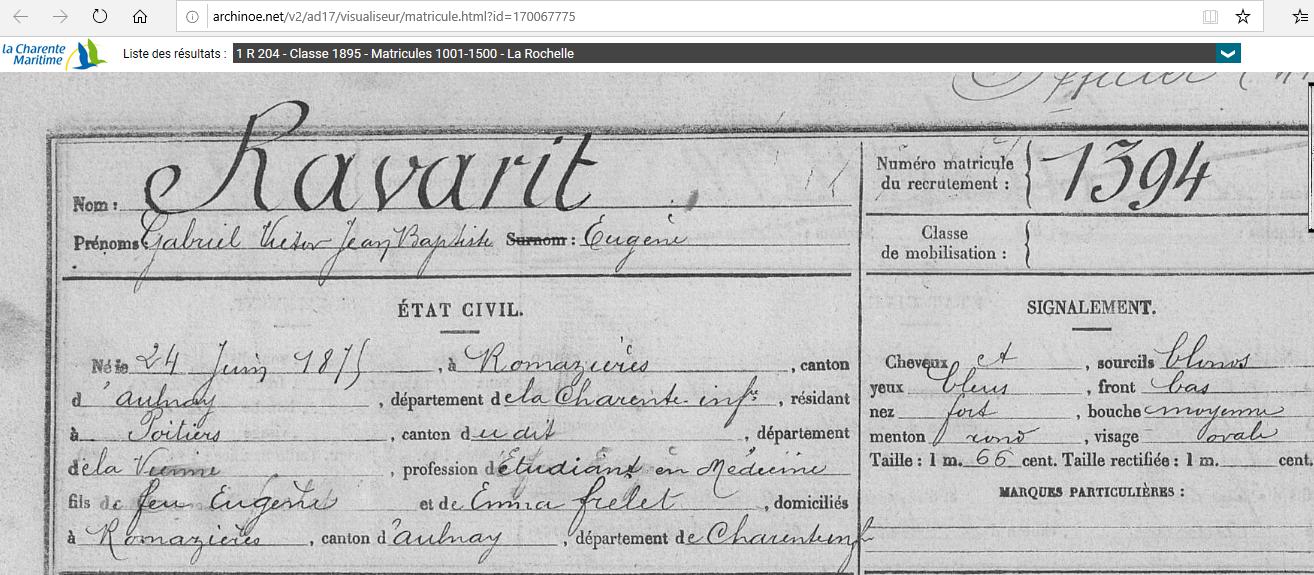 archinoe.net/v2/ad17/visualiseur/matricule.html?id=170067775
la Charente
Maritime
Liste des résultats : 1 R 204 - Classe 1895 - Matricules 1001-1500 - La Rochelle
Nom : Ravarit
Prénoms Gabriel Victor Jean Baptiste Surnom : Eugène
Numéro matricule du recrutement : 1394
Classe de mobilisation :
ÉTAT CIVIL.
Né le 24 Juin 1875, à Romazières, canton
d'aulnay, département de la Charente-infre, résidant
à Poitiers, canton dudit, département
de la Vienne, profession d'étudiant en Médecine
fils de feu Eugène et de Emma frelet, domiciliés
à Romazières, canton d'aulnay, département de Charente inf
SIGNALEMENT.
Cheveux et, sourcils blonds
yeux bleus, front bas
nez fort, bouche moyenne
menton rond, visage ovale
Taille : 1 m. 66 cent. Taille rectifiée : 1 m. cent.
MARQUES PARTICULIÈRES :